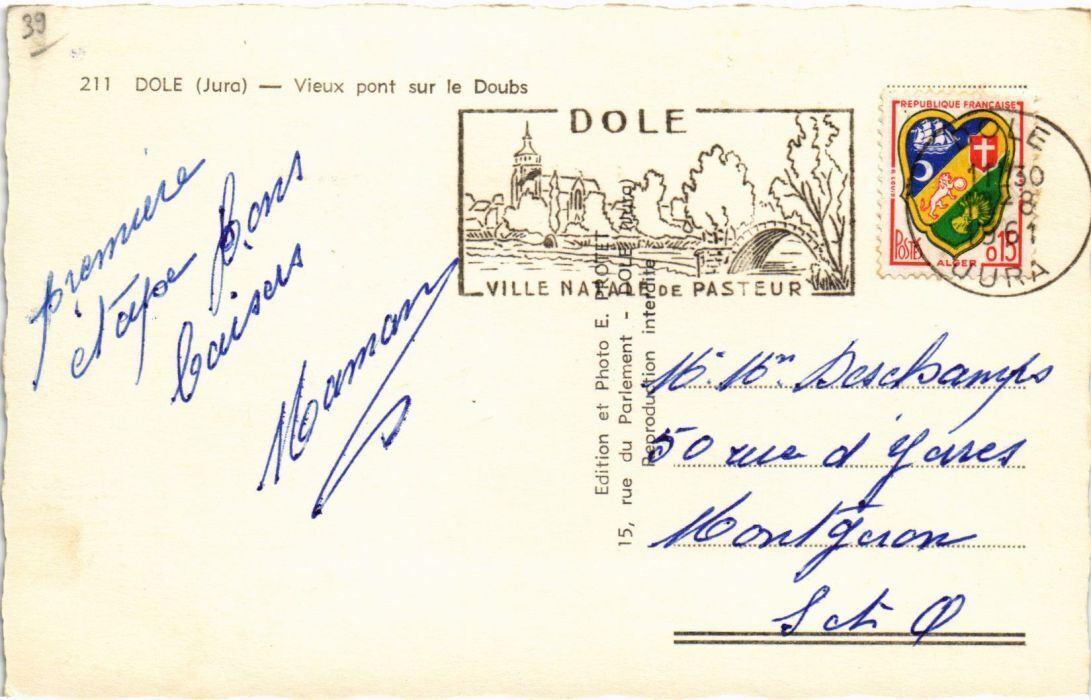 39
211 DOLE (Jura) — Vieux pont sur le Doubs
première
étape Bons
baisers
Maman
DOLE
VILLE NATALE DE PASTEUR
REPUBLIQUE FRANÇAISE
POSTES
ALGER
0,15
DOLE
30
8
1961
JURA
Edition et Photo E. PROTET
15, rue du Parlement - DOLE (Jura)
Reproduction interdite
M. Mme Deschamps
50 rue d'Yerres
Montgeron
S et O